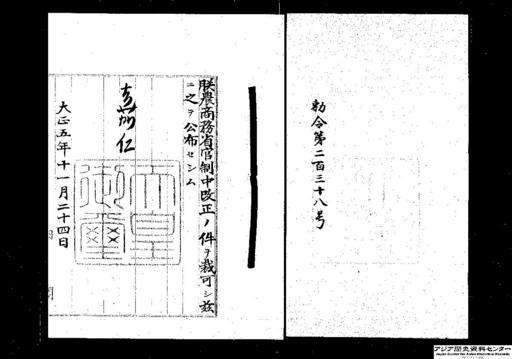 勅令第二百三十八号
朕農商務省官制中改正ノ件ヲ裁可シ茲
ニ之ヲ公布セシム
嘉仁
天皇
御璽
大正五年十一月二十四日
アジア歴史資料センター
Japan Center for Asian Historical Records